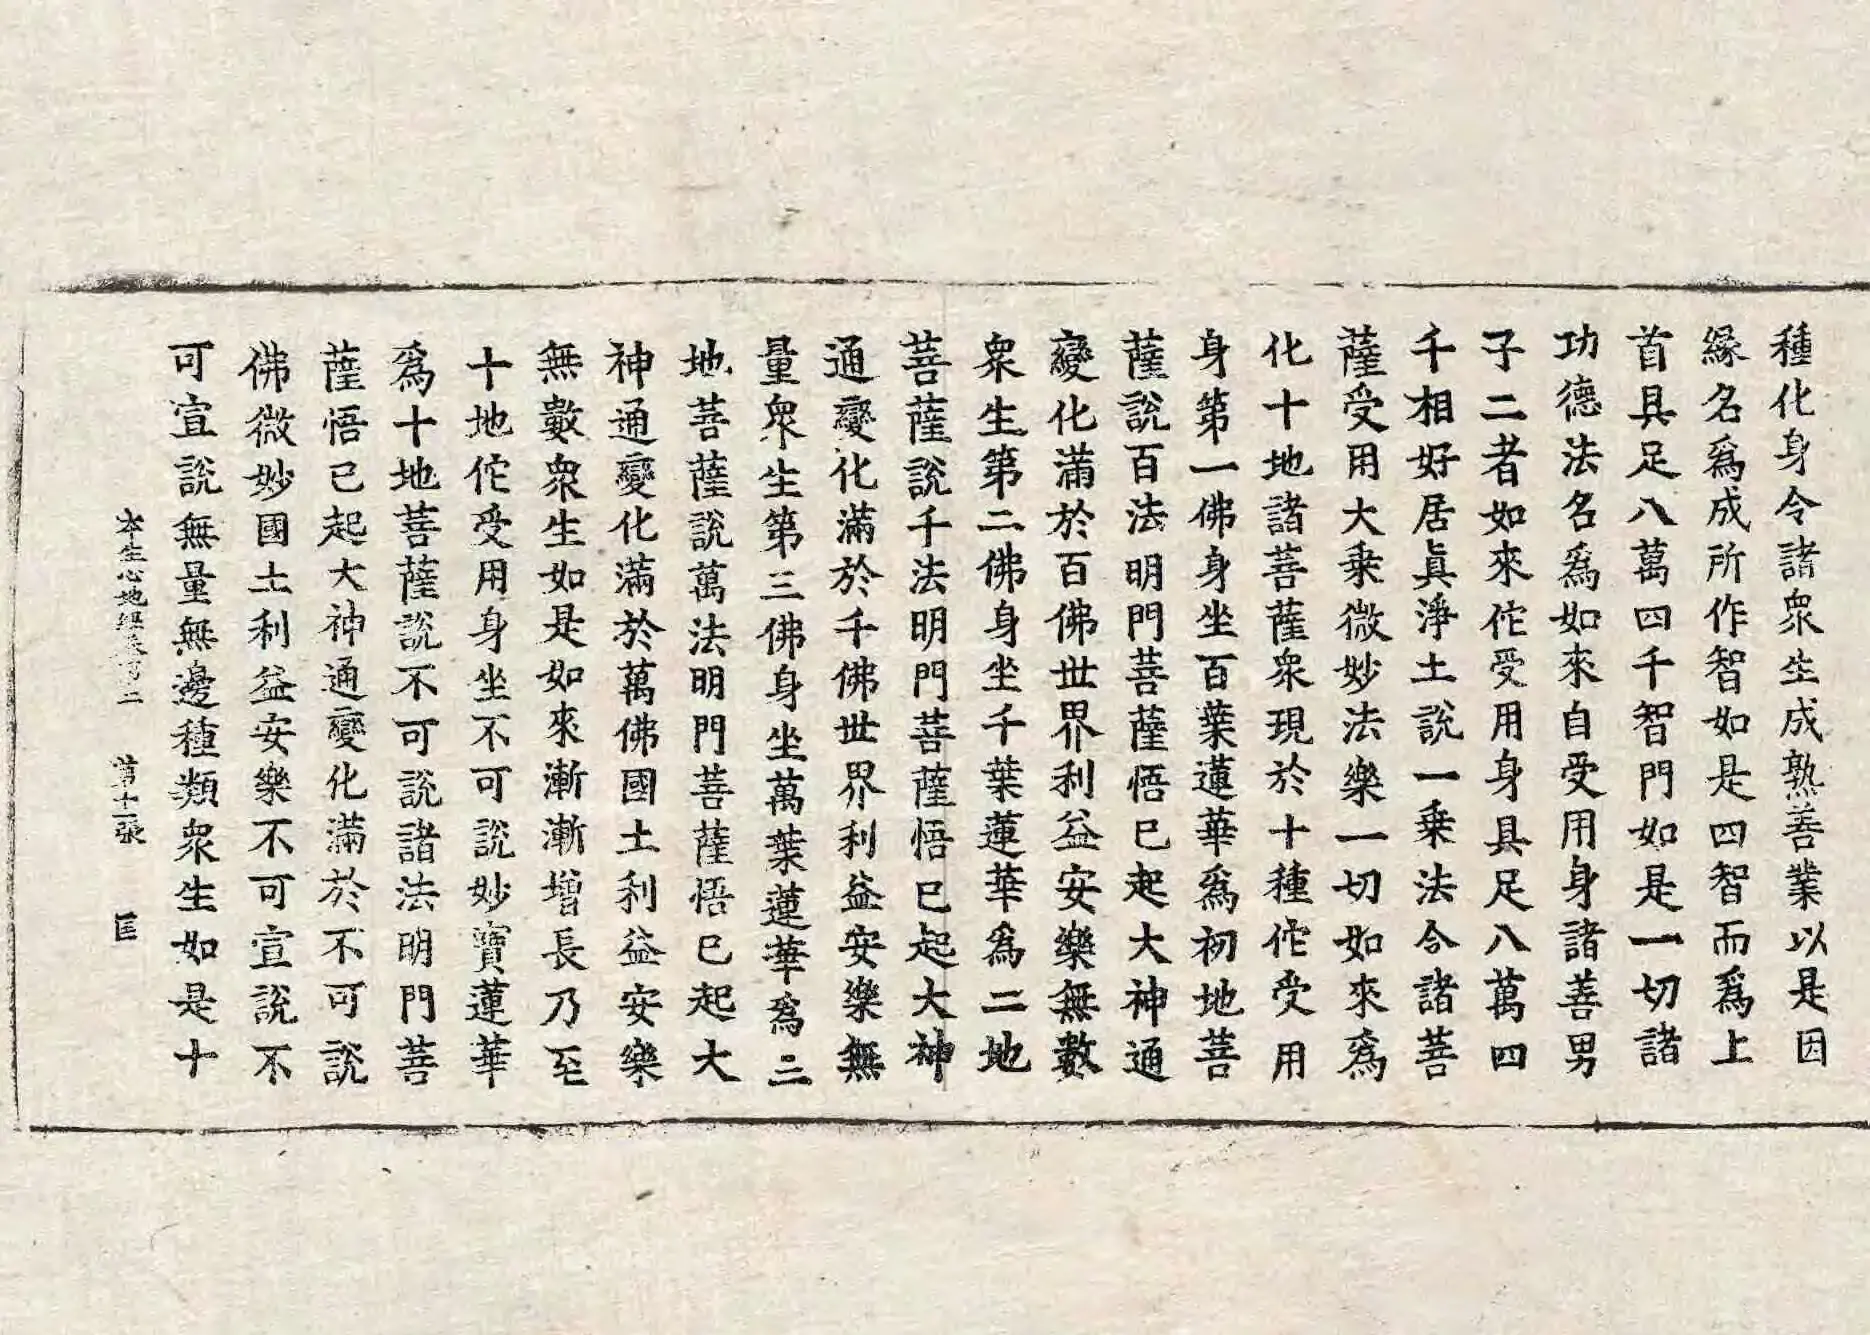 種化身令諸衆生成熟善業以是因
縁名爲成所作智如是四智而爲上
首具足八萬四千智門如是一切諸
功德法名爲如來自受用身諸善男
子二者如來佗受用身具足八萬四
千相好居眞淨土說一乗法令諸菩
薩受用大乗微妙法樂一切如來爲
化十地諸菩薩衆現於十種佗受用
身第一佛身坐百葉蓮華爲初地菩
薩說百法明門菩薩悟已起大神通
變化滿於百佛世界利益安樂無數
衆生第二佛身坐千葉蓮華爲二地
菩薩說千法明門菩薩悟已起大神
通變化滿於千佛世界利益安樂無
量衆生第三佛身坐萬葉蓮華爲三
地菩薩說萬法明門菩薩悟已起大
神通變化滿於萬佛國土利益安樂
無數衆生如是如來漸漸增長乃至
十地佗受用身坐不可說妙寶蓮華
爲十地菩薩說不可說諸法明門菩
薩悟已起大神通變化滿於不可說
佛微妙國土利益安樂不可宣說不
可宣說無量無邊種類衆生如是十
本生心地經卷第二 第十二張 匡